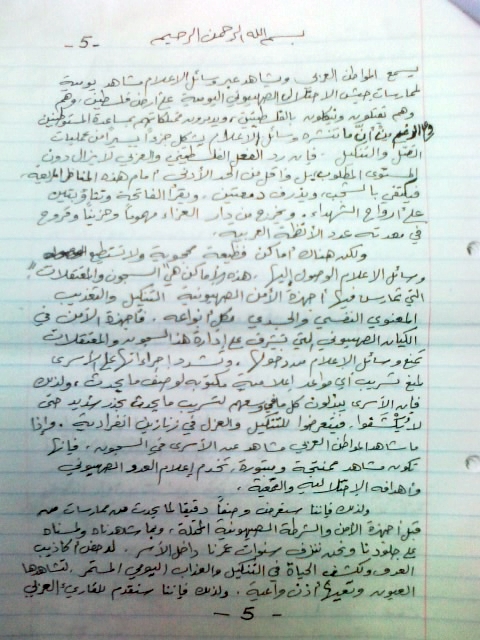 - 5 -
بسم الله الرحمن الرحيم
يسمع المواطن العربي ويشاهد عبر وسائل الاعلام مشاهد يومية
لممارسات جيش الاحتلال الصهيوني اليومية على ارض فلسطين، وهم
وهم يفتكون وينكلون بالفلسطينيين، ويدمرون ممتلكاتهم بمساعدة المستوطنين
وبالرغم من ان ما تنشره وسائل الاعلام يشكل جزءاً يسيراً من عمليات
القتل والتنكيل. فإن رد الفعل الفلسطيني والعربي لا يزال دون
المستوى المطلوب بل واقل من الحد الأدنى، امام هذه المناظر المريعة،
فيكتفي بالشجب، ويذرف دمعتين، ويقرأ الفاتحة
على ارواح الشهداء. ويخرج من دار العزاء مهموماً وحزيناً وقروح
في معدته عدد الأنظمة العربية.
ولكن هناك أماكن فظيعة محجوبة ولا تستطيع
وسائل الاعلام الوصول إليها، هذه الأماكن هي السجون والمعتقلات
التي تمارس فيها أجهزة الأمن الصهيونية التنكيل والتعذيب
المعنوي النفسي والجسدي بكل أنواعه. فأجهزة الأمن في
الكيان الصهيوني التي تشرف على إدارة هذه السجون والمعتقلات
تمنع وسائل الإعلام من دخولها، وتشدد اجراءاتها على الأسرى
لمنع تسريب اي مواد اعلامية مكتوبة لوصف ما يحدث، ولذلك
فإن الأسرى يبذلون كل ما في وسعهم لتسريب ما يحدث بحذر شديد حتى
لا يُكْتَشَفُوا، فيتعرضوا للتنكيل والعزل في زنازين انفرادية. وإذا
ما شاهد المواطن العربي مشاهد عن الأسرى في السجون، فإنها
تكون مشاهد ممنتجة ومبتورة، تخدم إعلام العدو الصهيوني
وأهدافه الإحتلالية والقمعية.
ولذلك فإننا سنعرض وصفاً دقيقاً لما يحدث من ممارسات من
قبل أجهزة الأمن والشرطة الصهيونية المحتلة، وبما شهدناه ولمسناه
على جلودنا ونحن ننزف سنوات عمرنا داخل الأسر. لدحض أكاذيب
العدو ونكشف الحياة في التنكيل والعذاب اليومي المستمر، لتشاهدها
العيون وتعيها أذن واعية. ولذلك فإننا سنقدم للقارئ العربي
- 5 -